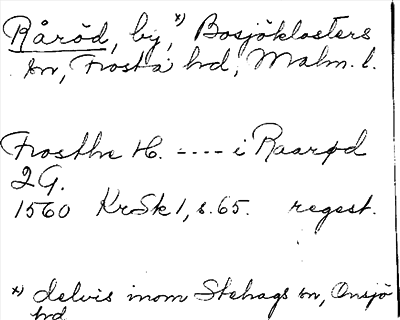 Råröd, by,*) Bosjöklosters
sn, Frosta hd, Malm. l.
Frosthe H. ---- i Raarød
2 G.
1560 KrSk 1, s. 65. regest.
*) delvis inom Stehags sn, Onsjö
hd